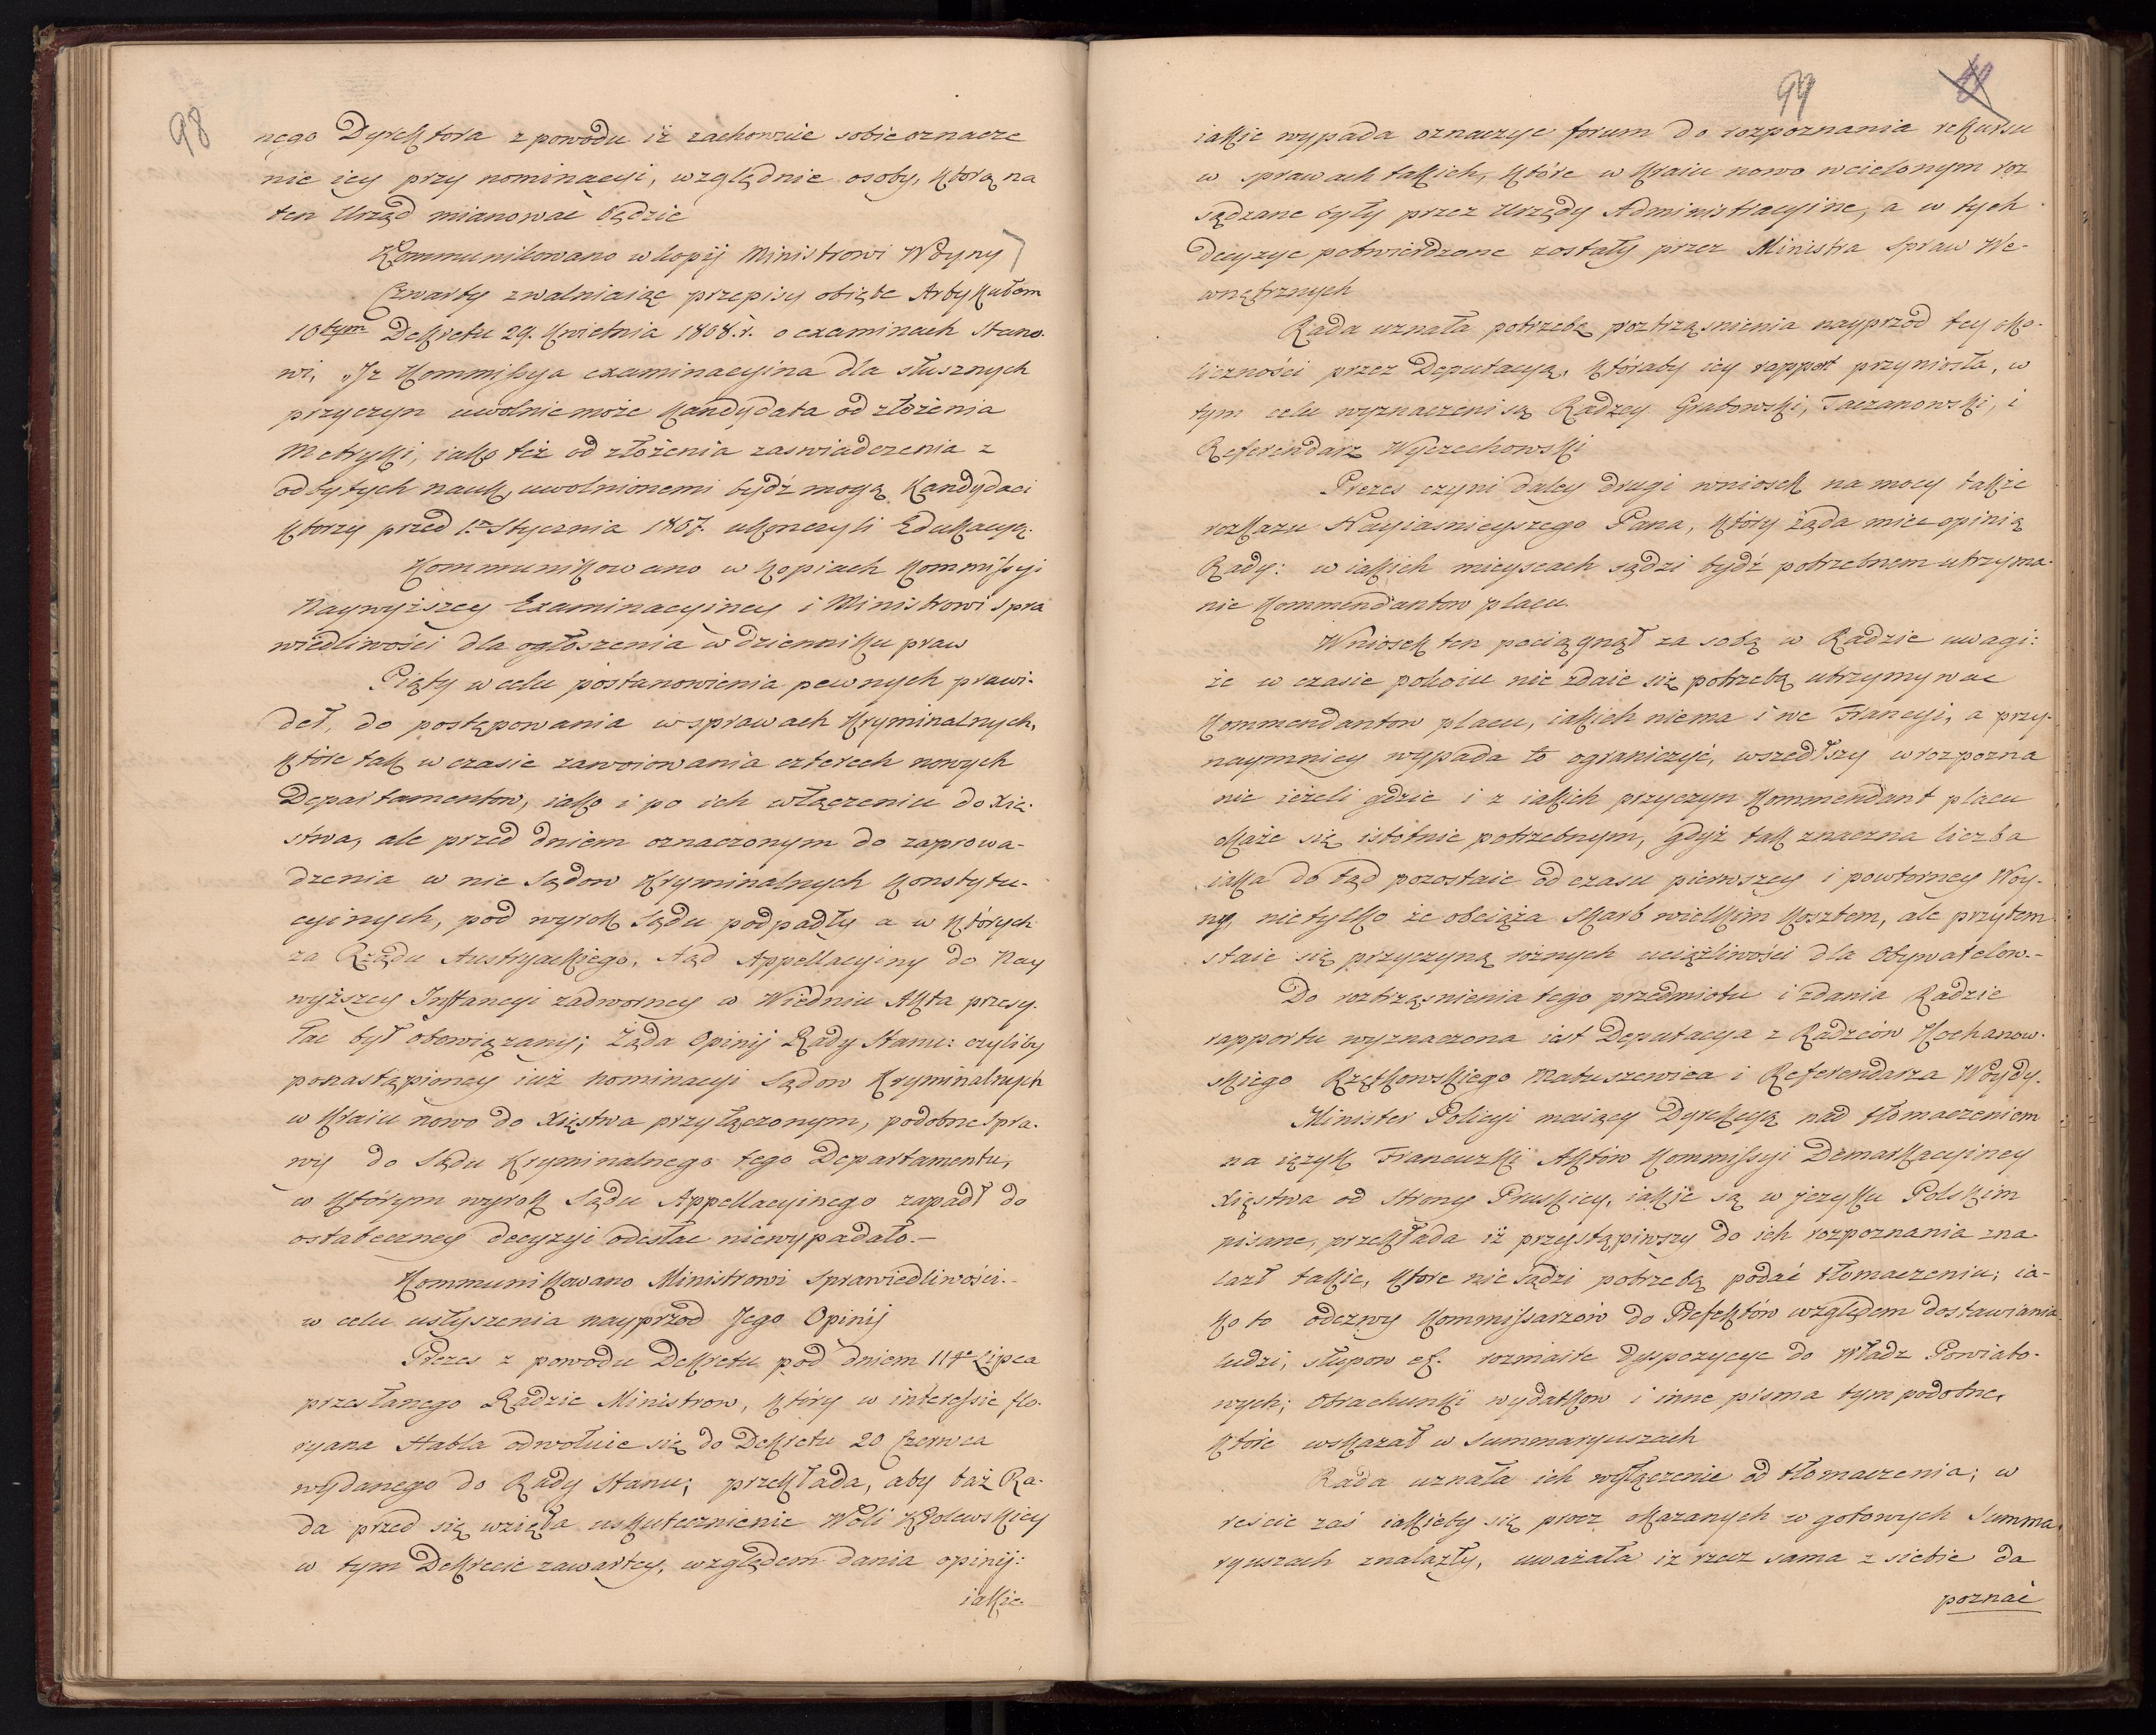 98
nego Dyrektora z powodu iż zachownie sobie oznacze
nie iey przy nominacyi, względnie osoby, którą na
ten Urząd mianować będzie
Kommunikowano w kopij Ministrowi Woyny
Czwarty zwalniaiąc przepisy obięte Artykułem
10tym Dekretu 29. Kwietnia 1808. r. o examinach Stano-
wi, "Iż Kommissya examinacyina dla słusznych
przyczyn uwolnić może Kandydata od złożenia
Metryki, iako też od złożenia zaswiadczenia z
odbytych nauk, uwolnionemi bydź mogą Kandydaci
którzy przed 1. Stycznia 1807. ukonczyli Edukacyą.
Kommunikowano w kopiach Kommissyi
Naywyższey Examinacyiney i Ministrowi Spra
wiedliwości dla ogłoszenia w dzienniku praw
Piąty w celu postanowienia pewnych prawi-
deł, do postępowania w sprawach Kryminalnych,
które tak w czasie zawoiowania czterech nowych
Departamentow, iako i po ich włączeniu do Xię-
stwa, ale przed dniem oznaczonym do zaprowa-
dzenia w nie Sądow Kryminalnych Konstytu-
cyinych, pod wyrok Sądu podpadły a w których
za Rządu Austryackiego, Sąd Appellacyiny do Nay
wyższey Instancyi zadworney w Wiedniu Akta przesy-
łac był obowiązany; Żąda Opinij Rady Stanu: czyliby
ponastąpioney iuż nominacyi Sądow Kryminalnych
w Kraiu nowo do Xięstwa przyłączonym, podobne Spra-
wy do Sądu Kryminalnego tego Departamentu,
w którym wyrok Sądu Appellacyinego zapadł do
ostateczney decyzyi odesłac niewypadało.-
Kommunikowano Ministrowi Sprawiedliwości.-
w celu usłyszenia nayprzod Jego Opinij
Prezes z powodu Dekretu pod dniem 11go Lipca
przesłanego Radzie Ministrow, który w interessie flo-
ryana Stabla odwołuie się do Dekretu 20 Czerwca
wydanego do Rady Stanu; przekłada, aby taż Ra-
da przed się wzięła uskutecznienie Woli Krolewskiey
w tym Dekrecie zawartey, względem dania opinij:
iakie.
99
iakie wypada oznaczyc forum do rozpoznania rekursu
w sprawach takich, które w kraiu nowo wcielonym roz
sądzane były przez Urzędy Administracyine, a w tych
decyzye potwierdzone zostały przez Ministra Spraw We-
wnętrznych
Rada uznała potrzebę roztrząsnienia nayprzod tey oko-
liczności przez Deputacyą, któraby iey rapport przyniosła, w
tym celu wyznaczeni są Radzcy Grabowski, Taczanowski, i
Referendarz Wyczechowski
Prezes czyni daley drugi wniosek na mocy także
rozkazu Nayiasnieyszego Pana, który żąda miec opinią
Rady: w iakich mieyscach sądzi bydź potrzebnem utrzyma-
nie Kommendantow placu.
Wniosek ten pociągnął za sobą w Radzie uwagi:
że w czasie pokoiu nie zdaie się potrzebą utrzymywac
Kommendantow placu, iakich niema i we Francyi, a przy-
naymniey wypada to ograniczyć, wszedłszy w rozpozna
nie ieżeli gdzie i z iakich przyczyn Kommendant placu
okaże się istotnie potrzebnym, gdyż tak znaczna liczba
iaka do tąd pozostaie od czasu pierwszey i powtorney Woy-
ny, nietylko że obciąża Skarb wielkim kosztem, ale przytem
staie się przyczyną rożnych uciążliwości dla Obywatelow.-
Do roztrząsnienia tego przedmiotu i zdania Radzie
rapportu wyznaczona iest Deputacya z Radzców Kochanow-
skiego Rzętkowskiego Matuszewica i Referendarza Woydy.
Minister Policyi maiący Dyrekcyą nad tłomaczeniem
na ięzyk Francuzki Aktów Kommissyi Demarkacyiney
Xięstwa od Strony Pruskiey, iakie są w języku Polskim
pisane, przekłada iż przystąpiwszy do ich rozpoznania zna-
lazł takie, które nie sądzi potrzebą podać tłomaczeniu; ia-
ko to odezwy Kommissarzów do Prefektów względem dostawiania
ludzi, słupow et. rozmaite dyspozycye do Władz Powiato-
wych; Obrachunki wydatkow i inne pisma tym podobne,
które wskazał w Summaryuszach
Rada uznała ich wyłączenie od tłomaczenia; w
reście zaś iakieby się procz okazanych w gotowych Summa-
ryuszach znalazły, uważała iz rzecz sama z siebie da
poznać